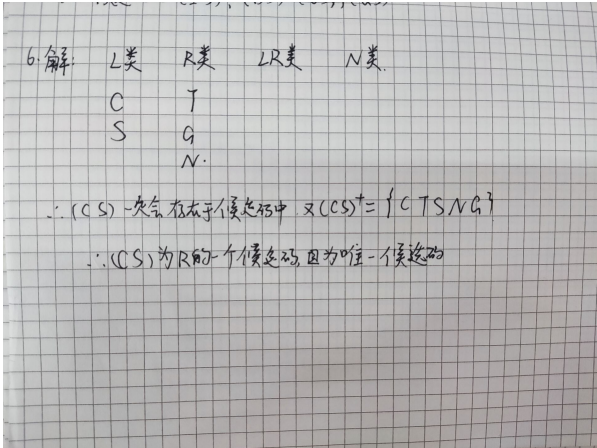 6.解: L类 R类 LR类 N类.
C T
S G
N.
∴(CS)一定会存在于候选码中 又(CS)⁺={CTSNG}
∴(CS)为R的一个候选码,且为唯一候选码